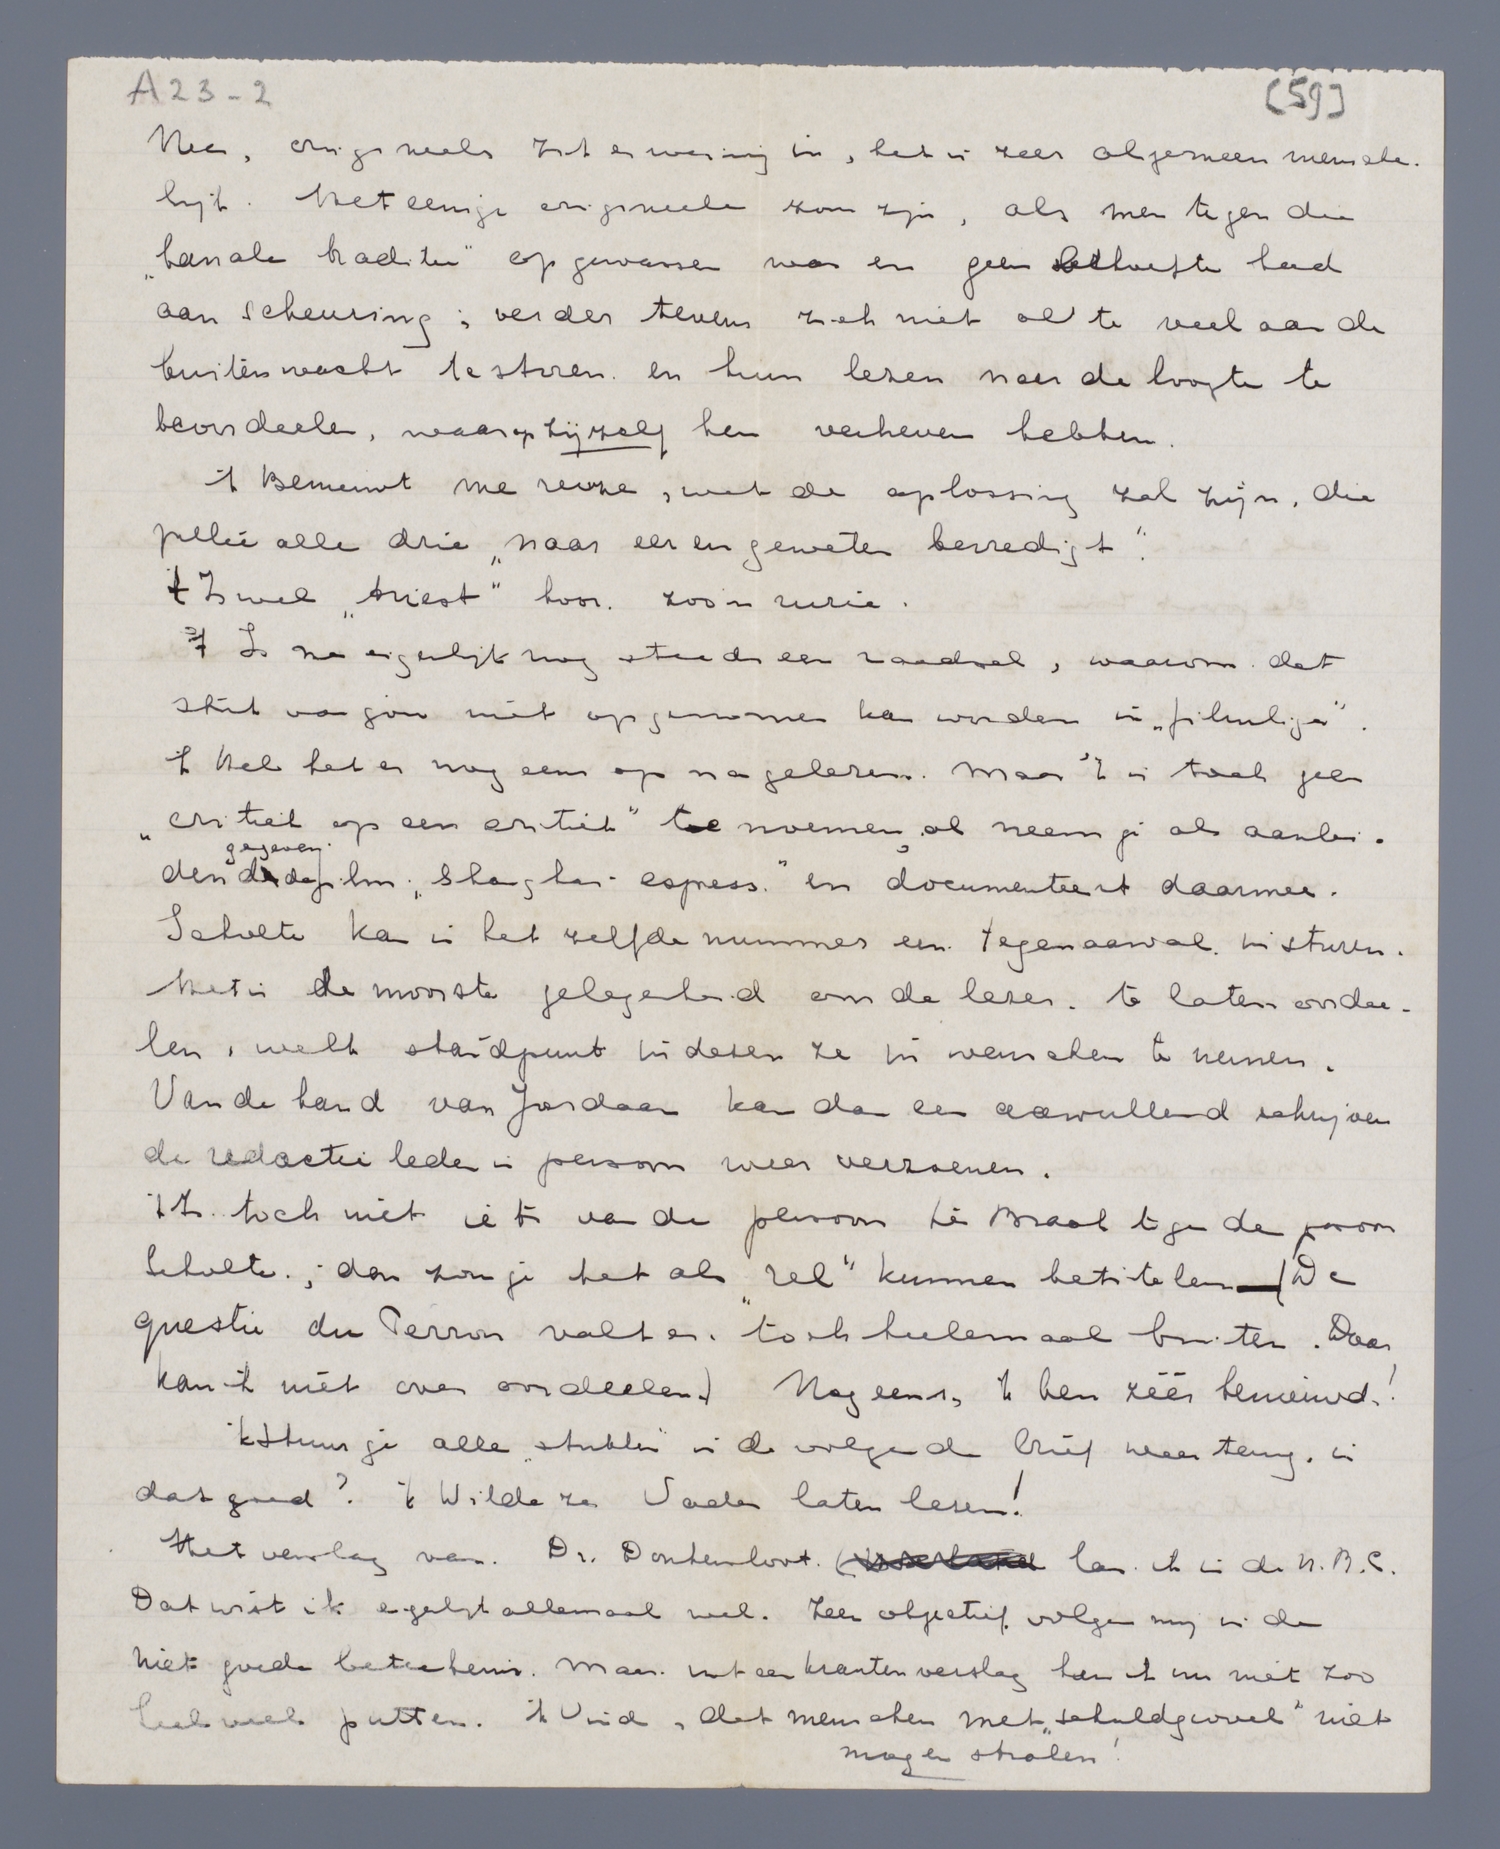 A 23 - 2
(59)
Nee, origineels zit er weinig in, het is zeer algemeen mensche-
lijk. Het eenige origineele zou zijn, als men tegen die
„banale traditie" opgewassen was en geen behoefte had
aan scheuring; verder tevens zich niet al te veel aan de
buitenwacht te storen en hun lezen naar de hoogte te
beoordeelen, waarop zijzelf hen verheven hebben.
'k Benieuwt me reuze, wat de oplossing zal zijn, die
jullie alle drie „naar eer en geweten bevredigt".
't Is wel „triest" hoor. zoo'n ruzie.
't Is me eigenlijk nog steeds een raadsel, waarom dat
stuk van jou niet opgenomen kan worden in „filmliga".
'k Heb het er nog eens op nagelezen. Maar 't is toch geen
„critiek op een critiek" te noemen, al neem je als aanlei-
gegeven
den de film „Shanghai-express" en documenteert daarmee.
Scholte kan in het zelfde nummer een tegenaanval insturen.
Het is de mooiste gelegenheid om de lezer te laten oordee-
len, welk standpunt in dezen ze in wenschen te nemen.
Van de hand van Jordaan kan dan een aanvullend schrijven
de redactie leden in persoon weer verzoenen.
't Is toch niet iets van de persoon ter Braak tegen de persoon
Scholte; dan zou je het als „rel" kunnen betitelen (De
questie du Perron valt er toch heelemaal buiten. Daar
kan ik niet over oordeelen.) Nog eens, 'k ben zéér benieuwd!
'k Stuur je alle „stukken" in de volgende brief weer terug, is
dat goed? 'k Wilde ze Vader laten lezen!
Het verslag van Dr. Donkersloot las ik in de N.R.C.
Dat wist ik eigenlijk allemaal wel. Zeer objectief volgens mij in de
niet goede beteekenis. Maar uit een krantenverslag kan ik nu niet zoo
heel veel putten. 'k Vind, dat menschen met „schuldgevoel" niet
mogen stralen!